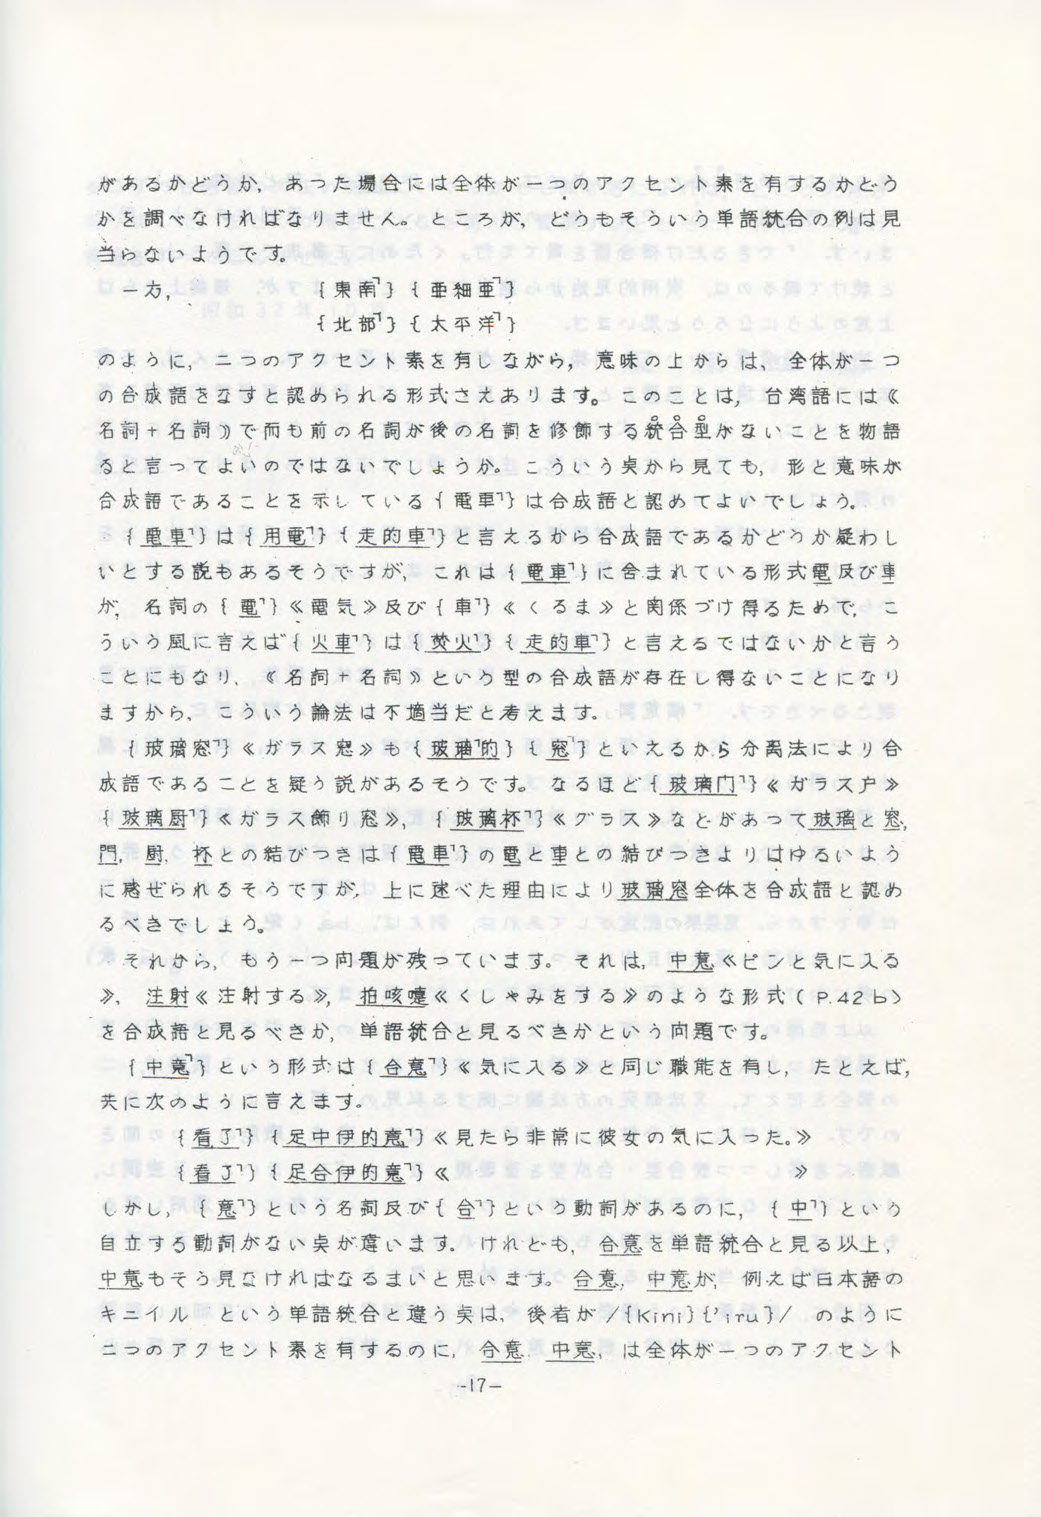 があるかどうか, あった場合には全体が一つのアクセント素を有するかどう
かを調べなければなりません。ところが, どうもそういう単語統合の例は見
当らないようです。
一方, {東南˥} {亜細亜˥}
{北部˥} {太平洋˥}
のように, 二つのアクセント素を有しながら, 意味の上からは, 全体が一つ
の合成語をなすと認められる形式さえあります。このことは, 台湾語には《
名詞+名詞》で而も前の名詞が後の名詞を修飾する統合型がないことを物語
ると言ってよいのではないでしょうか。こういう点から見ても, 形と意味が
合成語であることを示している{電車˥}は合成語と認めてよいでしょう。
{電車˥}は{用電˥}{走的車˥}と言えるから合成語であるかどうか疑わし
いとする説もあるそうですが, これは{電車˥}に含まれている形式電及び車
が, 名詞の{電˥}《電気》及び{車˥}《くるま》と関係づけ得るためで, こ
ういう風に言えば{火車˥}は{焚火˥}{走的車˥}と言えるではないかと言う
ことにもなり, 《名詞+名詞》という型の合成語が存在し得ないことになり
ますから, こういう論法は不適当だと考えます。
{玻璃窓˥}《ガラス窓》も{玻璃˥的}{窓˥}といえるから分離法により合
成語であることを疑う説があるそうです。なるほど{玻璃門˥}《ガラス戸》
{玻璃厨˥}《ガラス飾り窓》, {玻璃杯˥}《グラス》などがあって玻璃と窓,
門, 厨, 杯との結びつきは{電車˥}の電と車との結びつきよりはゆるいよう
に感ぜられるそうですが, 上に述べた理由により玻璃窓全体を合成語と認め
るべきでしょう。
それから, もう一つ問題が残っています。それは, 中意《ピンと気に入る
》, 注射《注射する》, 拍咳嚏《くしゃみをする》のような形式(P.42b)
を合成語と見るべきか, 単語統合と見るべきかという問題です。
{中意˥}という形式は{合意˥}《気に入る》と同じ職能を有し, たとえば,
共に次のように言えます。
{看了˥}{足中伊的意˥}《見たら非常に彼女の気に入った。》
{看了˥}{足合伊的意˥}《 》
しかし, {意˥}という名詞及び{合˥}という動詞があるのに, {中˥}という
自立する動詞がない点が違います。けれども, 合意を単語統合と見る以上,
中意もそう見なければなるまいと思います。合意, 中意が, 例えば日本語の
キニイル という単語統合と違う点は, 後者が/{kini}{'iru}/ のように
二つのアクセント素を有するのに, 合意, 中意, は全体が一つのアクセント
-17-